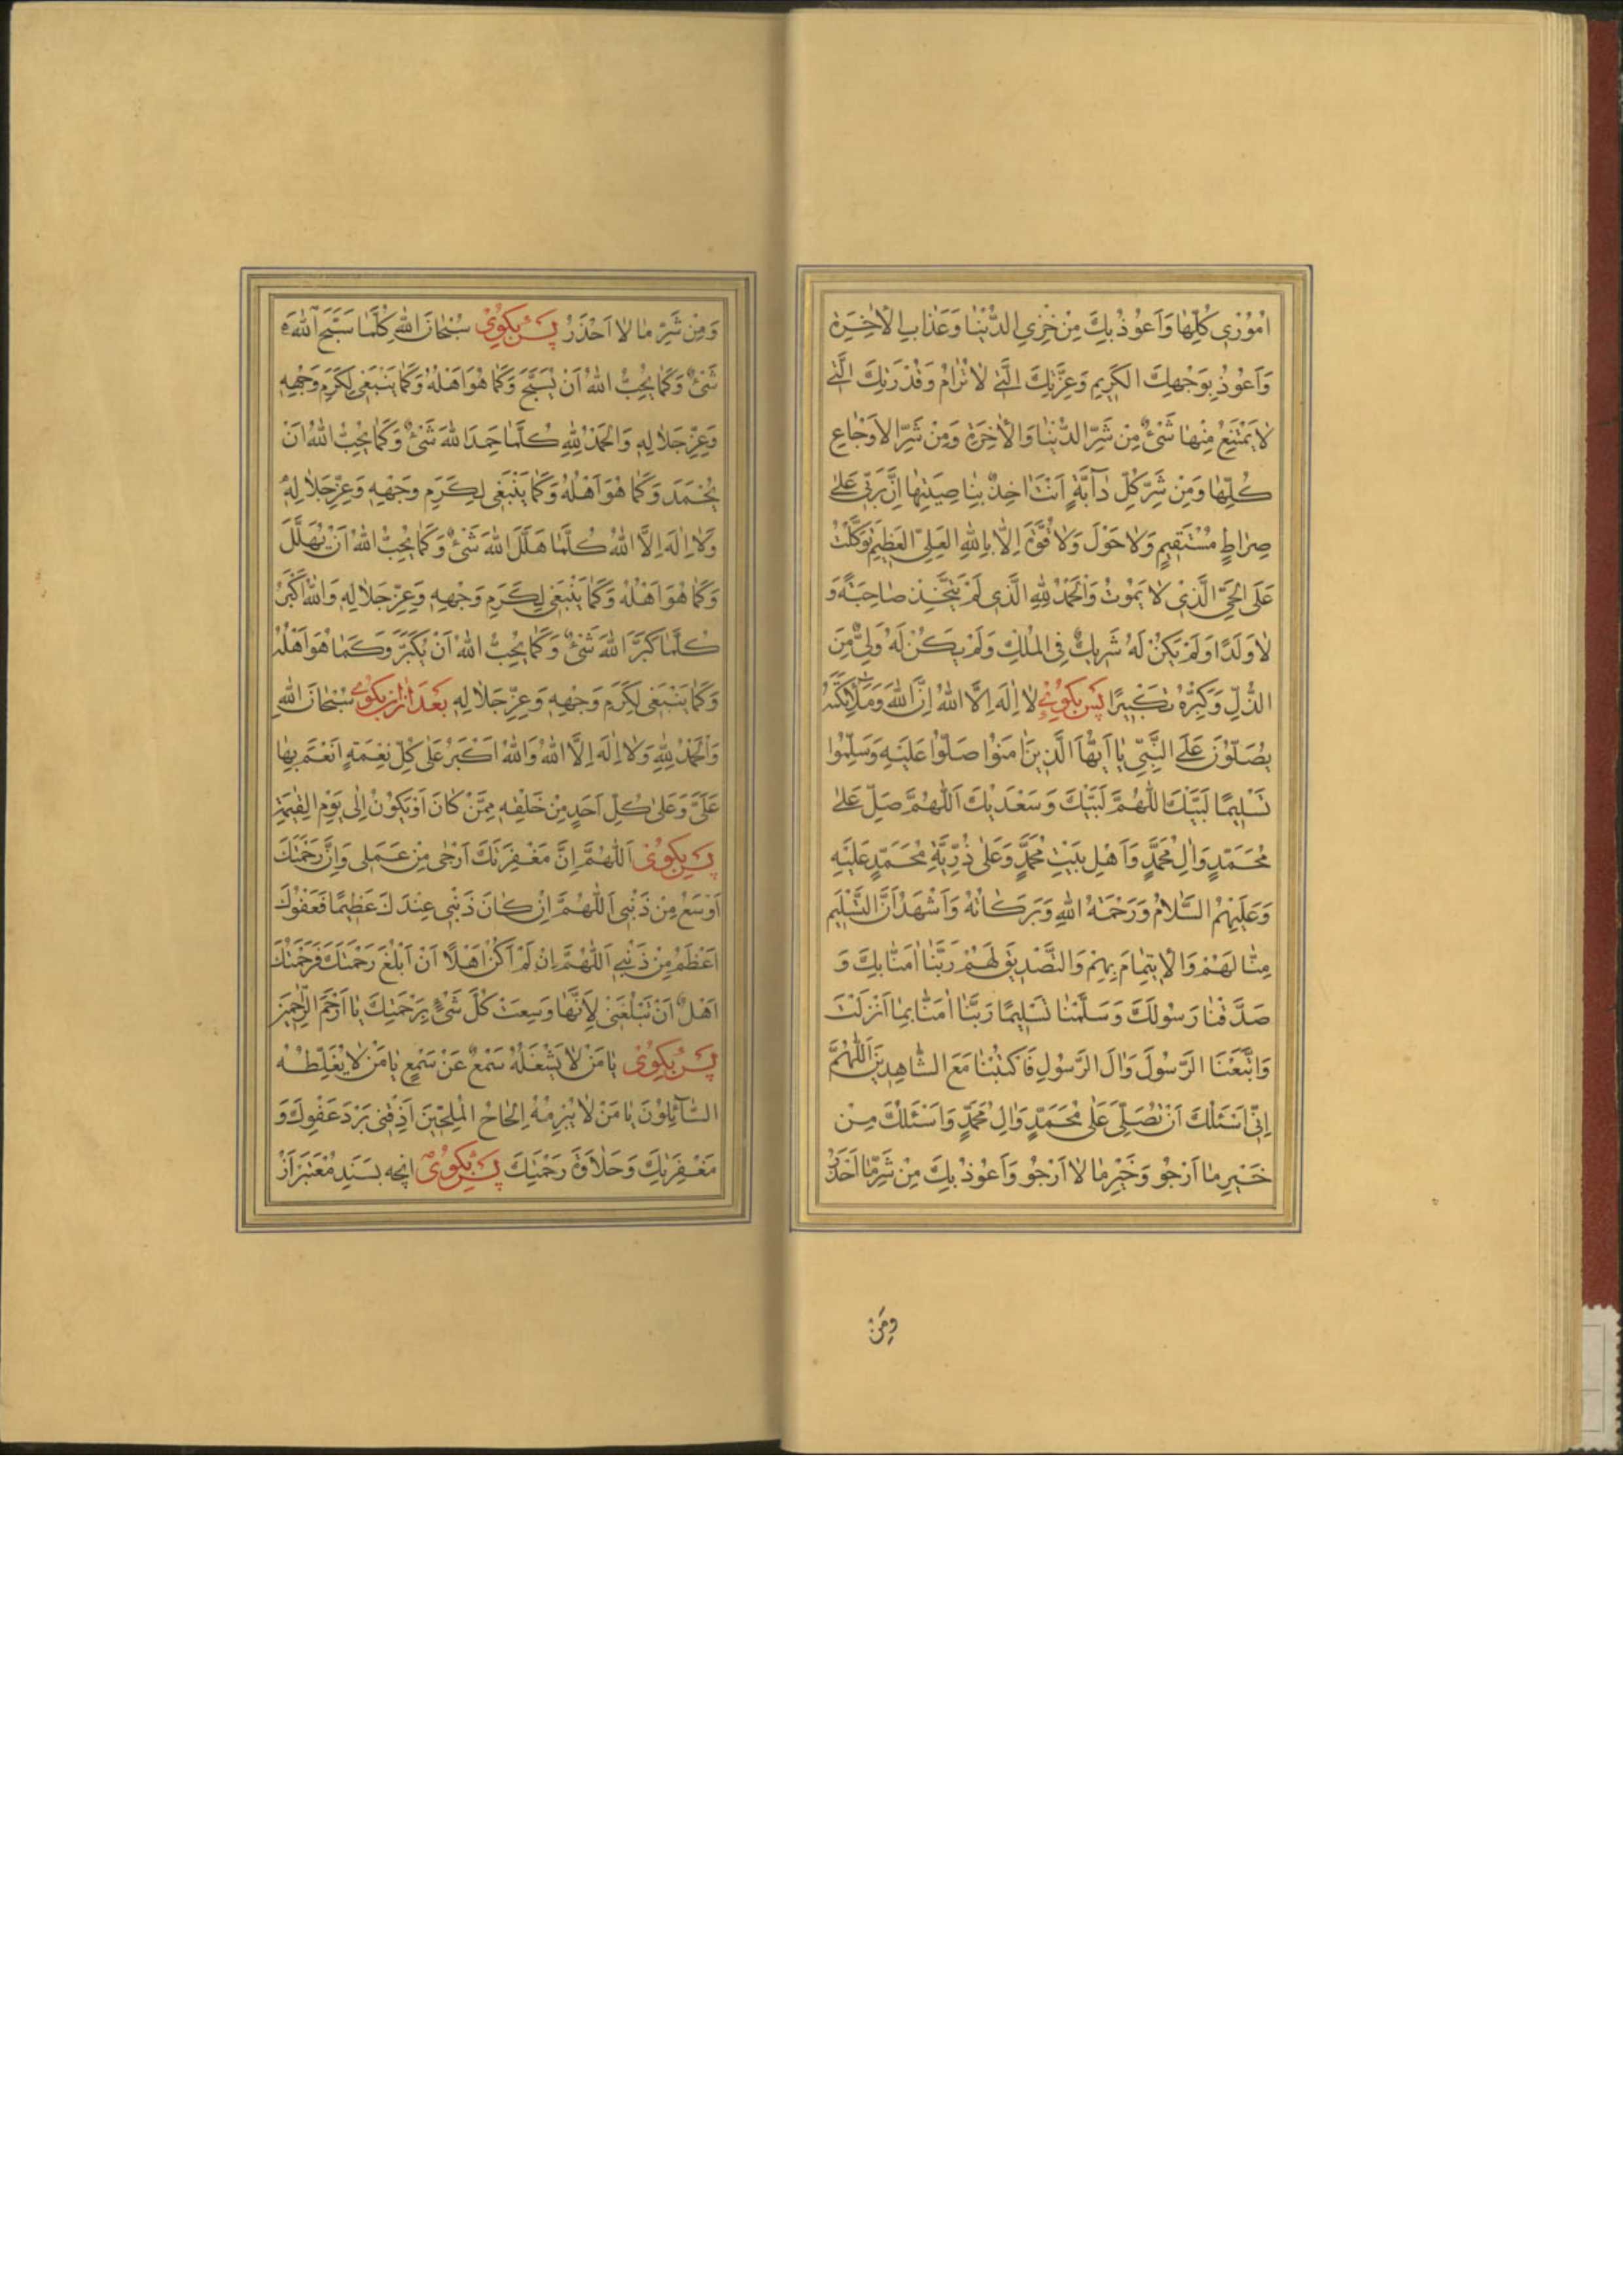 اُمُوْرِي كُلِّهَا وَاَعُوْذُ بِكَ مِنْ خِزْيِ الدُّنْيَا وَعَذَابِ الْاٰخِرَةِ
وَاَعُوْذُ بِوَجْهِكَ الْكَرِيمِ وَعِزَّتِكَ الَّتِي لَا تُرَامُ وَقُدْرَتِكَ الَّتِي
لَا يَمْتَنِعُ مِنْهَا شَيْءٌ مِنْ شَرِّ الدُّنْيَا وَالْاٰخِرَةِ وَمِنْ شَرِّ الْاَوْجَاعِ
كُلِّهَا وَمِنْ شَرِّ كُلِّ دَآبَّةٍ اَنْتَ اٰخِذٌ بِنَاصِيَتِهَا اِنَّ رَبّي عَلىٰ
صِرَاطٍ مُسْتَقِيمٍ وَلَا حَوْلَ وَلَا قُوَّةَ اِلَّا بِاللّٰهِ الْعَلِيِّ الْعَظِيمِ تَوَكَّلْتُ
عَلَى الْحَيِّ الَّذِيْ لَا يَمُوتُ وَالْحَمْدُ لِلّٰهِ الَّذِي لَمْ يَتَّخِذْ صَاحِبَةً وَ
لَا وَلَدًا وَلَمْ يَكُنْ لَهُ شَرِيكٌ فِي الْمُلْكِ وَلَمْ يَكُنْ لَهُ وَلِيٌّ مِنَ
الذُّلِّ وَكَبِّرْهُ تَكْبِيرًا پس بكوئي لَا اِلٰهَ اِلَّا اللّٰهُ اِنَّ اللّٰهَ وَمَلٰٓئِكَتَهُ
يُصَلُّوْنَ عَلَى النَّبِيِّ يَا اَيُّهَا الَّذِينَ اٰمَنُوا صَلُّوا عَلَيْهِ وَسَلِّمُوا
تَسْلِيمًا لَبَّيْكَ اللّٰهُمَّ لَبَّيْكَ وَسَعْدَيْكَ اَللّٰهُمَّ صَلِّ عَلىٰ
مُحَمَّدٍ وَاٰلِ مُحَمَّدٍ وَاَهْلِ بَيْتِ مُحَمَّدٍ وَعَلىٰ ذُرِّيَّةِ مُحَمَّدٍ عَلَيْهِ
وَعَلَيْهِمُ السَّلَامُ وَرَحْمَةُ اللّٰهِ وَبَرَكَاتُهُ وَاَشْهَدُ اَنَّ التَّسْلِيمَ
مِنَّا لَهُمْ وَالْاِيتِمَامَ بِهِمْ وَالتَّصْدِيقَ لَهُمْ رَبَّنَا اٰمَنَّا بِكَ وَ
صَدَّقْنَا رَسُولَكَ وَسَلَّمْنَا تَسْلِيمًا رَبَّنَا اٰمَنَّا بِمَا اَنْزَلْتَ
وَاتَّبَعْنَا الرَّسُولَ وَاٰلَ الرَّسُولِ فَاكْتُبْنَا مَعَ الشَّاهِدِينَ اَللّٰهُمَّ
اِنِّي اَسْئَلُكَ اَنْ تُصَلِّيَ عَلىٰ مُحَمَّدٍ وَاٰلِ مُحَمَّدٍ وَاَسْئَلُكَ مِنْ
خَيْرِ مَا اَرْجُو وَخَيْرِ مَا لَا اَرْجُو وَاَعُوْذُ بِكَ مِنْ شَرِّ مَا اَحْذَرُ
وَمِنْ
وَمِنْ شَرِّ مَا لَا اَحْذَرُ پس بكوئي سُبْحَانَ اللّٰهِ كُلَّمَا سَبَّحَ اللّٰهَ
شَيْءٌ وَكَمَا يُحِبُّ اللّٰهُ اَنْ يُسَبَّحَ وَكَمَا هُوَ اَهْلُهُ وَكَمَا يَنْبَغِي لِكَرَمِ وَجْهِهِ
وَعِزِّ جَلَالِهِ وَالْحَمْدُ لِلّٰهِ كُلَّمَا حَمِدَ اللّٰهَ شَيْءٌ وَكَمَا يُحِبُّ اللّٰهُ اَنْ
يُحْمَدَ وَكَمَا هُوَ اَهْلُهُ وَكَمَا يَنْبَغِي لِكَرَمِ وَجْهِهِ وَعِزِّ جَلَالِهِ
وَلَا اِلٰهَ اِلَّا اللّٰهُ كُلَّمَا هَلَّلَ اللّٰهَ شَيْءٌ وَكَمَا يُحِبُّ اللّٰهُ اَنْ يُهَلَّلَ
وَكَمَا هُوَ اَهْلُهُ وَكَمَا يَنْبَغِي لِكَرَمِ وَجْهِهِ وَعِزِّ جَلَالِهِ وَاللّٰهُ اَكْبَرُ
كُلَّمَا كَبَّرَ اللّٰهَ شَيْءٌ وَكَمَا يُحِبُّ اللّٰهُ اَنْ يُكَبَّرَ وَكَمَا هُوَ اَهْلُهُ
وَكَمَا يَنْبَغِي لِكَرَمِ وَجْهِهِ وَعِزِّ جَلَالِهِ بعد ازان بكوئي سُبْحَانَ اللّٰهِ
وَالْحَمْدُ لِلّٰهِ وَلَا اِلٰهَ اِلَّا اللّٰهُ وَاللّٰهُ اَكْبَرُ عَلىٰ كُلِّ نِعْمَةٍ اَنْعَمَ بِهَا
عَلَيَّ وَعَلىٰ كُلِّ اَحَدٍ مِنْ خَلْقِهِ مِمَّنْ كَانَ اَوْ يَكُوْنُ اِلىٰ يَوْمِ الْقِيٰمَةِ
پس بكوئي اَللّٰهُمَّ اِنَّ مَغْفِرَتَكَ اَرْجىٰ مِنْ عَمَلِي وَاِنَّ رَحْمَتَكَ
اَوْسَعُ مِنْ ذَنْبِي اَللّٰهُمَّ اِنْ كَانَ ذَنْبِي عِنْدَكَ عَظِيمًا فَعَفْوُكَ
اَعْظَمُ مِنْ ذَنْبِي اَللّٰهُمَّ اِنْ لَمْ اَكُنْ اَهْلًا اَنْ اَبْلُغَ رَحْمَتَكَ فَرَحْمَتُكَ
اَهْلٌ اَنْ تَبْلُغَنِي لِاَنَّهَا وَسِعَتْ كُلَّ شَيْءٍ بِرَحْمَتِكَ يَا اَرْحَمَ الرَّاحِمِينَ
پس بكوئي يَا مَنْ لَا يَشْغَلُهُ سَمْعٌ عَنْ سَمْعٍ يَا مَنْ لَا يُغَلِّطُهُ
السَّآئِلُوْنَ يَا مَنْ لَا يُبْرِمُهُ اِلْحَاحُ الْمُلِحِّينَ اَذِقْنِي بَرْدَ عَفْوِكَ وَ
مَغْفِرَتِكَ وَحَلَاوَةَ رَحْمَتِكَ پس بكوئي انچه بسَنَدِ مُعْتَبَر اَز